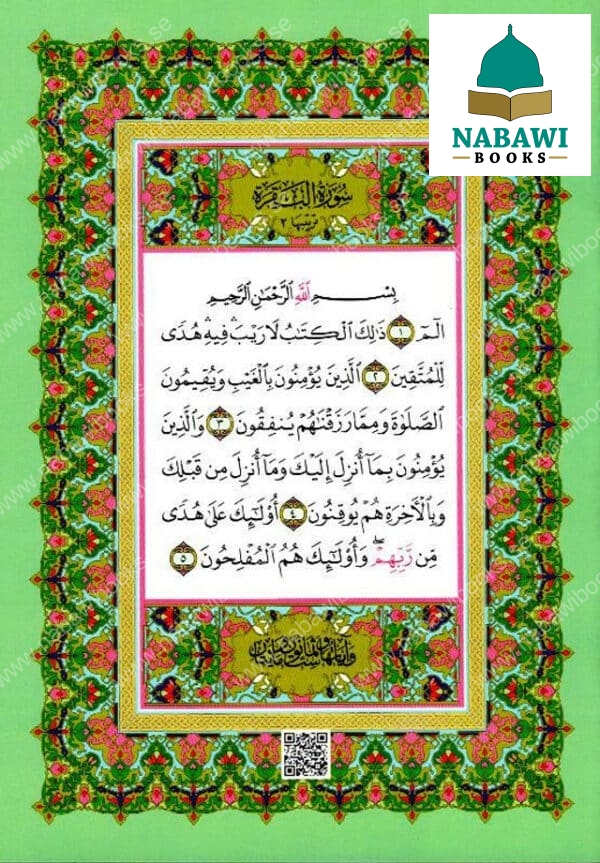 NABAWI
BOOKS
سُورَةُ الْبَقَرَةِ
ترتيبها ٢
بِسْمِ اللَّهِ الرَّحْمَٰنِ الرَّحِيمِ
الٓمٓ ١ ذَٰلِكَ الْكِتَابُ لَا رَيْبَ ۛ فِيهِ ۛ هُدًى
لِّلْمُتَّقِينَ ٢ الَّذِينَ يُؤْمِنُونَ بِالْغَيْبِ وَيُقِيمُونَ
الصَّلَوٰةَ وَمِمَّا رَزَقْنَاهُمْ يُنفِقُونَ ٣ وَالَّذِينَ
يُؤْمِنُونَ بِمَآ أُنزِلَ إِلَيْكَ وَمَآ أُنزِلَ مِن قَبْلِكَ
وَبِالْآخِرَةِ هُمْ يُوقِنُونَ ٤ أُوْلَٰٓئِكَ عَلَىٰ هُدًى
مِّن رَّبِّهِمْ ۖ وَأُوْلَٰٓئِكَ هُمُ الْمُفْلِحُونَ ٥
وآياتها ست وثمانون ومائتان